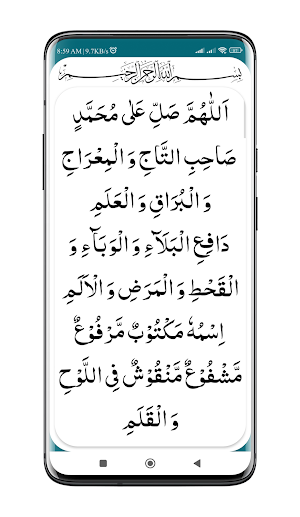 8:59 AM | 9.7KB/s
بِسْمِ اللّٰهِ الرَّحْمٰنِ الرَّحِيْمِ
اَللّٰهُمَّ صَلِّ عَلٰى مُحَمَّدٍ
صَاحِبِ التَّاجِ وَ الْمِعْرَاجِ
وَ الْبُرَاقِ وَ الْعَلَمِ
دَافِعِ الْبَلَآءِ وَ الْوَبَآءِ وَ
الْقَحْطِ وَ الْمَرَضِ وَ الْاَلَمِ
اِسْمُهٗ مَكْتُوْبٌ مَّرْفُوْعٌ
مَّشْفُوْعٌ مَّنْقُوْشٌ فِى اللَّوْحِ
وَ الْقَلَمِ